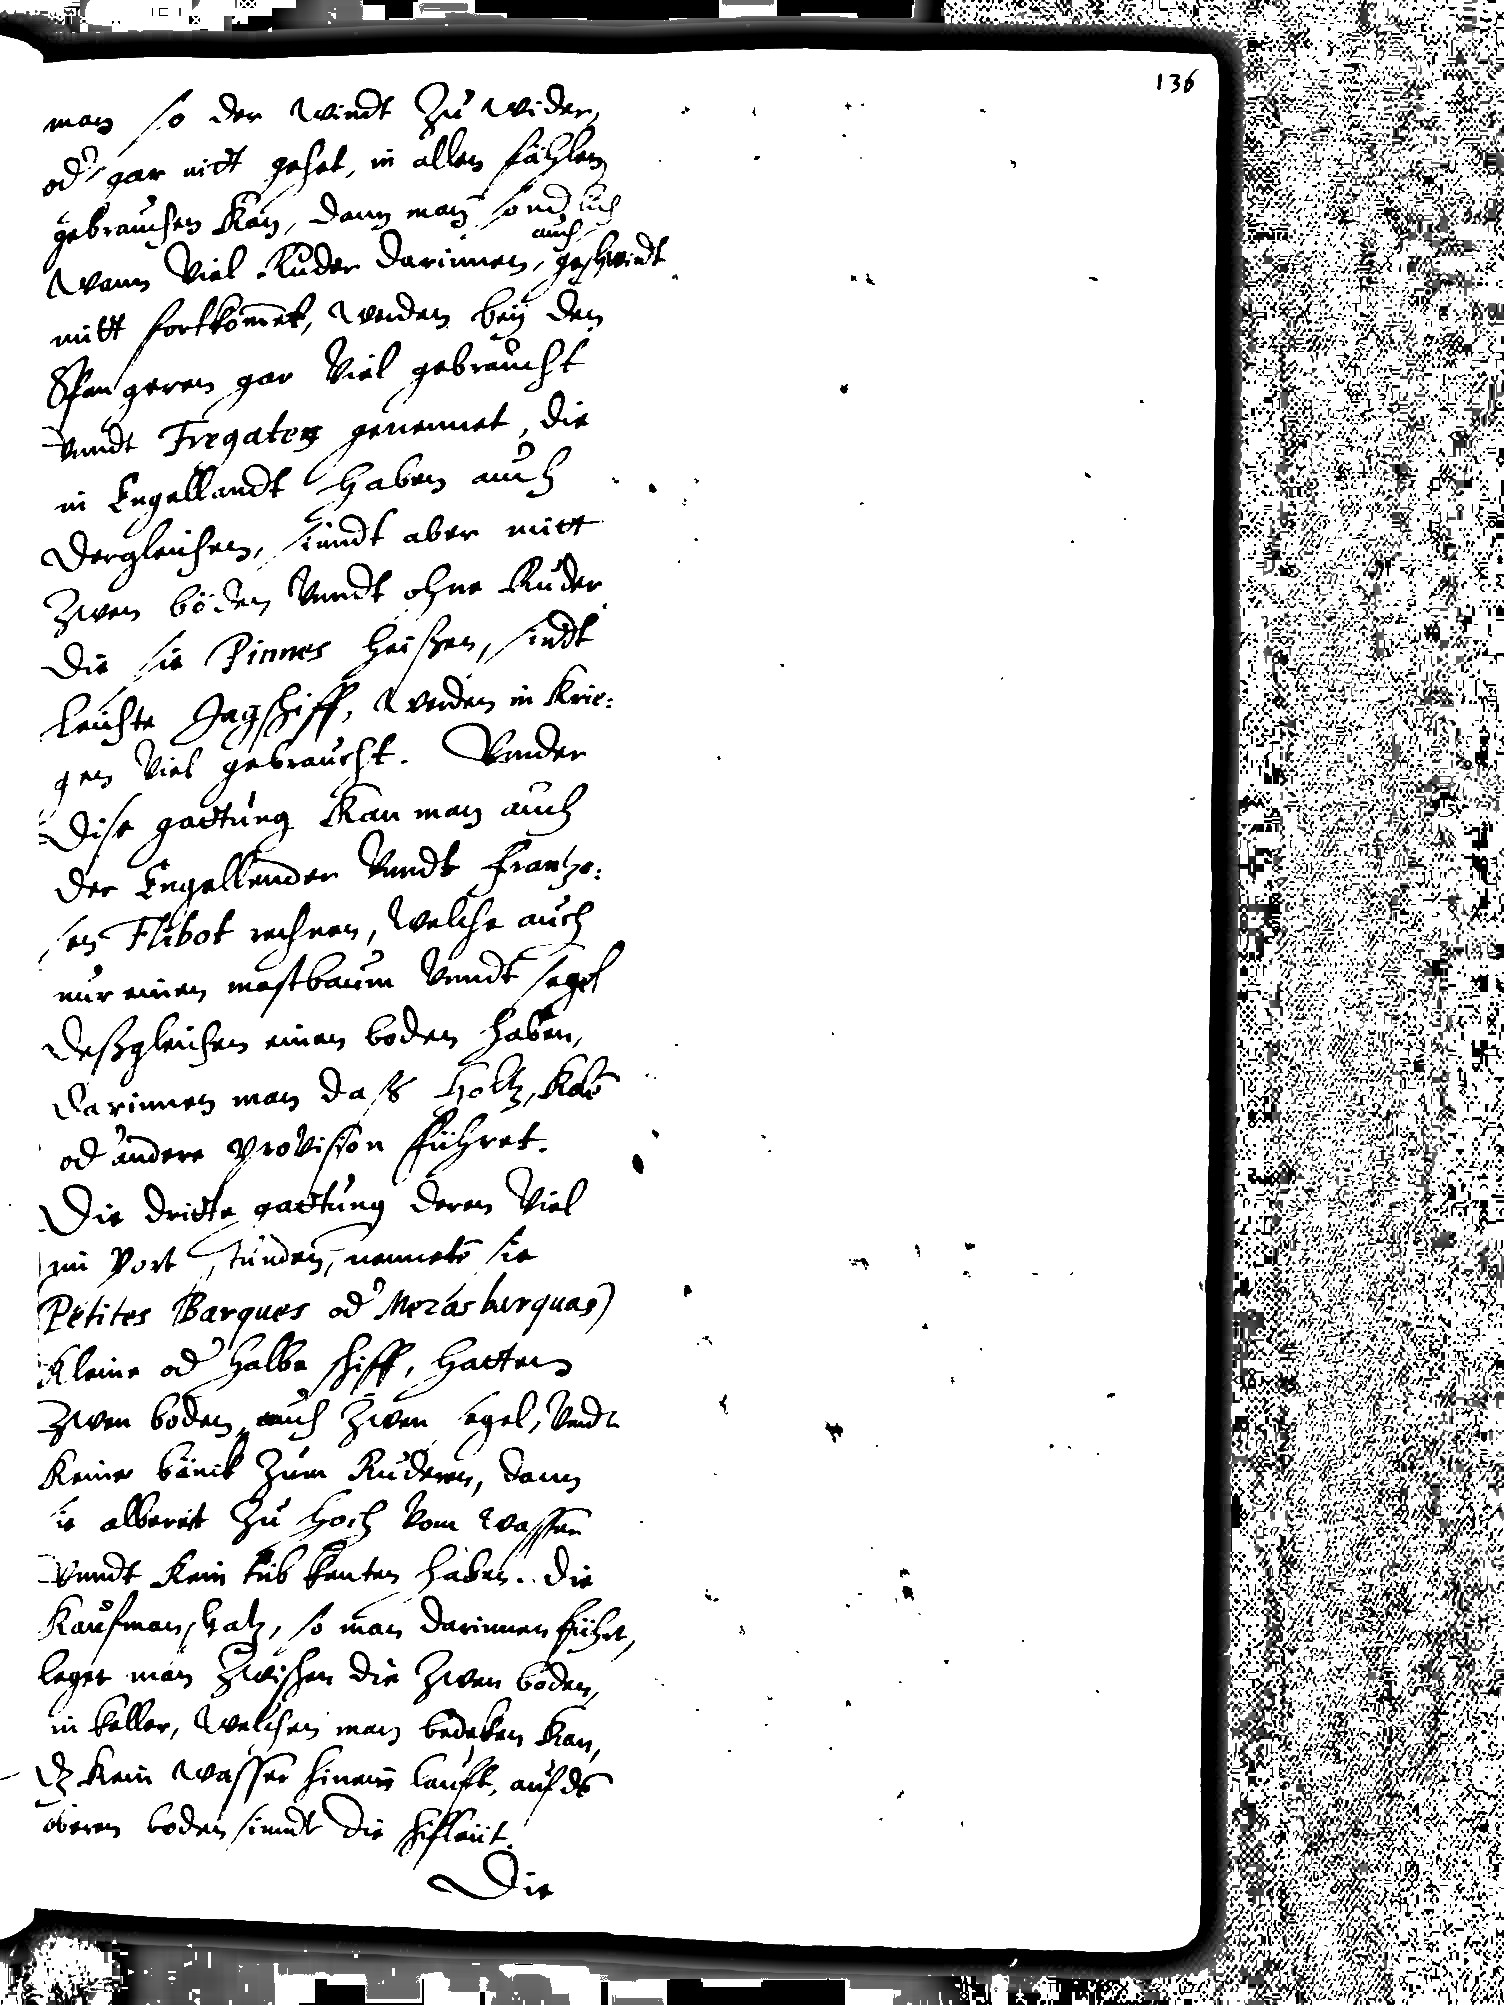 136
man so der windt zu wider,
od' gar nitt gehet, in allen fählen
gebrauchen kan, dann man sond'lich
auch
wann viel Ruder darinnen, geschwindt
mitt fortkom̄et, werden beÿ den
Spangeren gar viel gebraucht
vnndt Fregaten genennet, die
in Engellandt haben auch
dergleichen, sindt aber mitt
zwen böden vnndt ohne Ruder
die sie Pinnes heißen, sindt
leichte Jagschiff, werden in krie:
gen viel gebraucht. Vnder
dise gattung kan man auch
der Engellender vnndt frantzo:
sen Flibot rechnen, welche auch
nur einen mastbaum vnndt segel
deßgleichen einen boden haben,
darinnen man daß holtz,
od' andere provision führet.
Die dritte gattung deren viel
im port stunden, nennete sie
Petites Barques od' Mezas barquas
kleine od' halbe schiff, hatten
zwen boden auch zwen segel, vndt
keine bänck zum Ruderen, dann
sie albereit zu hoch vom wasser
vnndt kein haben. Die
kaufmanschatz, so man darinnen führt,
leget man zwischen die zwen böden,
in keller, welchen man bedeken kan,
dz kein wasser hinein lauft, auf dē
oberen boden sinndt die schifleüt.
Die